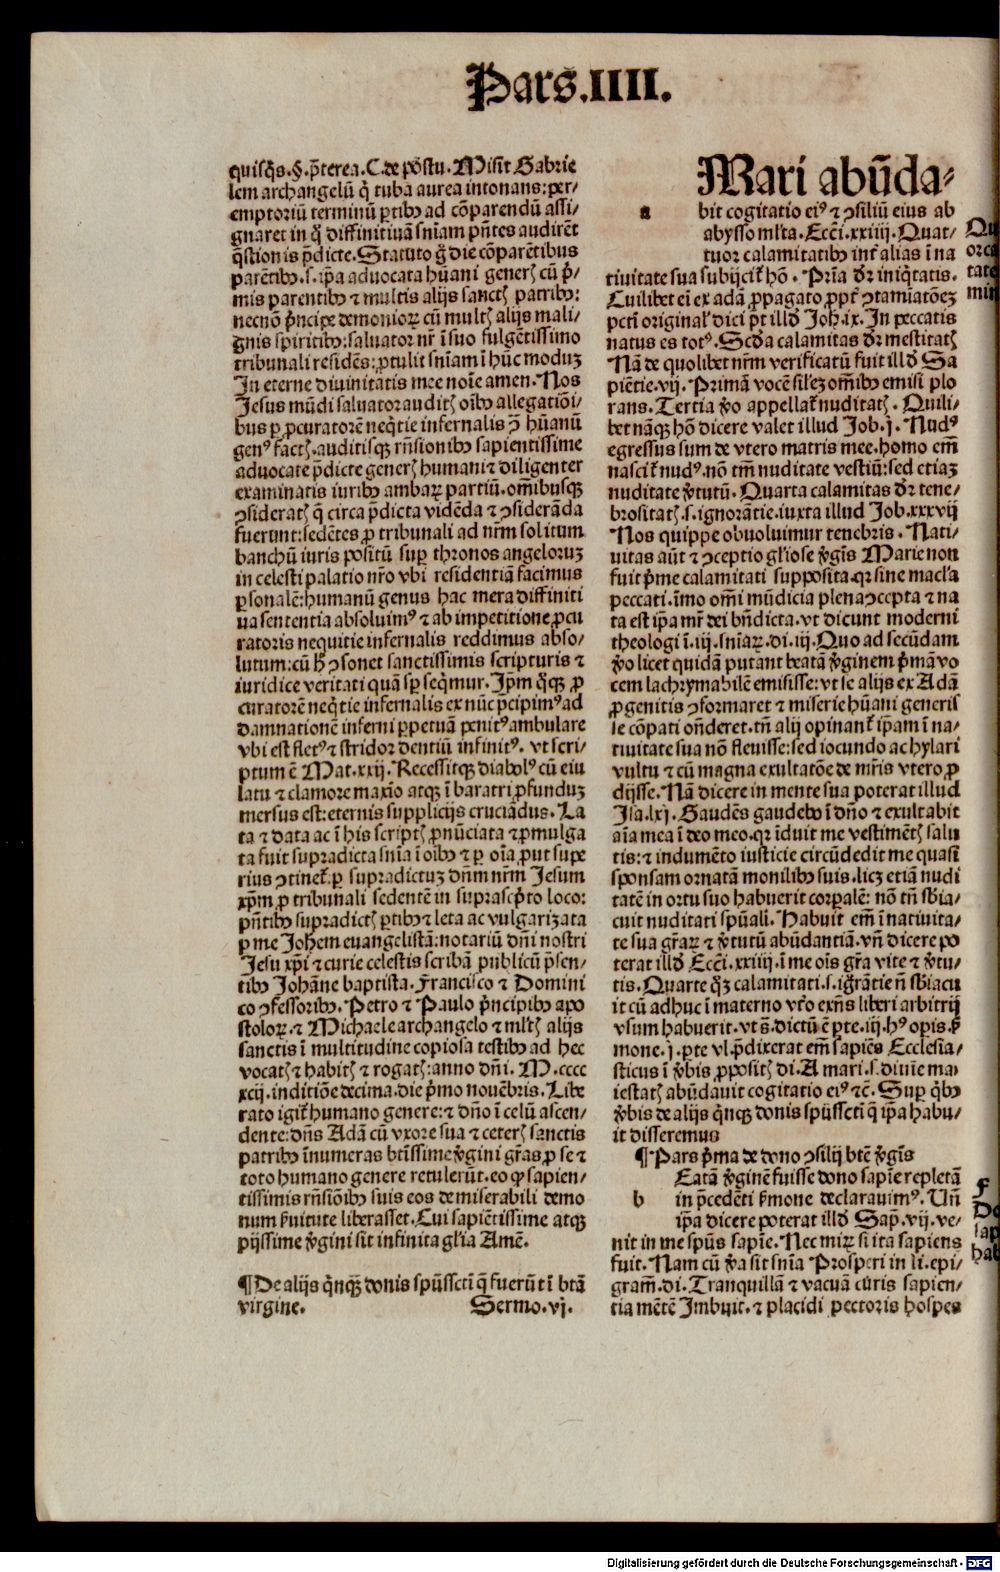 Pars.IIII.
quisq̃s.§.p̃terea.C.de põstu.Misit Gabrie
lem archangelũ q̃ tuba aurea intonans:per-
emptoriũ terminũ ꝑtibꝰ ad cõparendũ assi/
gnaret in q̃ diffinitiuã sniam pñtes audirẽt
q̃stionis p̃dicte.Statuto g̃ die cõparẽtibus
parẽtibꝰ.s.ip̃a aduocata hũani generꝭ cũ p̃/
mis parentibꝰ ⁊ multis alijs sanctꝭ patribꝰ:
necnõ p̃ncipe demonioꝝ cũ multꝭ alijs mali/
gnis spiritibꝰ:saluator nr̃ ĩ suo fulgẽtissimo
tribunali residẽs:ꝓtulit sniam ĩ hũc moduꝫ
In eterne diuinitatis mee noĩe amen.Nos
Jesus mũdi saluator auditꝭ oĩbꝰ allegatiõi/
bus ꝑ ꝓcuratorẽ neq̃tie infernalis ↄ̃ hũanũ
genꝰ factꝭ.auditisqꝫ rñsionibꝰ sapientissime
aduocate p̃dicte generꝭ humani ⁊ diligenter
examinatis iuribꝰ ambaꝝ partiũ.om̃ibusqꝫ
ↄsideratꝭ q̃ circa p̃dicta vidẽda ⁊ ↄsiderãda
fuerunt:sedẽtes ꝓ tribunali ad nr̃m solitum
banchũ iuris positũ suꝑ thronos angeloruꝫ
in celesti palatio nr̃o vbi residentiã facimus
ꝑsonalẽ:humanũ genus hac mera diffiniti
ua sententia absoluimꝰ ⁊ ab impetitione ꝓcu
ratoris nequitie infernalis reddimus abso/
lutum:cũ hͦ ↄsonet sanctissimis scripturis ⁊
iuridice veritati quã sp̃ seq̃mur.Ip̃m q̃qꝫ ꝓ
curatorẽ neq̃tie infernalis ex nũc p̃cipimꝰ ad
damnationẽ inferni ꝑpetuã penitꝰ ambulare
vbi est fletꝰ ⁊ stridor dentiũ infinitꝰ. vt scri/
ptum ẽ Mat.xxij.Recessitqꝫ diabolꝰ cũ eiu
latu ⁊ clamore maxĩo atqꝫ ĩ baratri ꝓfunduꝫ
mersus est:eternis supplicijs cruciãdus.La
ta ⁊ data ac ĩ his scriptꝭ ꝓnũciata ⁊ ꝓmulga
ta fuit supradicta snĩa ĩ oĩbꝰ ⁊ ꝑ oĩa ꝓut supe
rius ↄtinet̃.ꝑ supradictuꝫ dñm nr̃m Jesum
xp̃m ꝓ tribunali sedentẽ in suprascp̃to loco:
pñtibꝰ supradictꝭ ꝑtibꝰ ⁊ leta ac vulgarizata
ꝑ me Johẽm euangelistã:notariũ dñi nostri
Jesu xp̃i ⁊ curie celestis scribã publicũ p̃sen/
tibꝰ Johãne baptista.Frãcisco ⁊ Domini
co ↄfessoribꝰ.Petro ⁊ Paulo p̃ncipibꝰ apo
stoloꝝ.⁊ Michaele archangelo ⁊ ml̃tꝭ alijs
sanctis ĩ multitudine copiosa testibꝰ ad hec
vocatꝭ ⁊ habitꝭ ⁊ rogatꝭ:anno dñi.M.cccc
xcij.inditiõe decima.die p̃mo nouẽbris.Libe
rato igit̃ humano genere:⁊ dño ĩ celũ ascen/
dente:dñs Adã cũ vxore sua ⁊ ceterꝭ sanctis
patribꝰ ĩnumeras btĩssime ṽgini gr̃as ꝓ se ⁊
toto humano genere retulerũt.eo ꝙ sapien/
tissimis rñsiõibꝰ suis eos de miserabili demo
num s̃uitute liberasset.Cui sapiẽtissime atqꝫ
pijssime ṽgini sit infinita gl̃ia Amẽ.
¶De alijs q̃nqꝫ donis spũssctĩ q̃ fuerũt ĩ btã
virgine. Sermo.vj.
Mari abũda/
a bit cogitatio eiꝰ ⁊ ↄsiliũ eius ab
abysso ml̃ta.Ecc̃i.xxiiij.Quat/
tuor calamitatibꝰ int̃ alias ĩ na
tiuitate sua subijcit̃ hõ. Pr̃ia dr̃ iniq̃tatis.
Cuilibet eĩ ex adã ꝓpagato ꝓpt̃ ↄtamiatõeꝫ
pctĩ original̃ dici p̃t illđ Joh̃.ix.In peccatis
natus es totꝰ.Scđa calamitas dr̃ mestitatꝭ
Nã de quolibet nr̃m verificatũ fuit illđ Sa
piẽtie.vij.Primã vocẽ sil̃eꝫ om̃ibꝰ emisi plo
rans.Tertia ṽo appellat̃ nuditatꝭ. Quili/
bet nãqꝫ hõ dicere valet illud Job.j. Nudꝰ
egressus sum de vtero matris mee.homo em̃
nascit̃ nudꝰ.nõ tm̃ nuditate vestiũ:sed etiaꝫ
nuditate ṽtutũ.Quarta calamitas dr̃ tene/
brositatꝭ.s.ignorãtie.iuxta illud Job.xxxvij
Nos quippe obuoluimur tenebris. Nati/
uitas aũt ⁊ ↄceptio gl̃iose ṽgĩs Marie non
fuit p̃me calamitati supposita.qꝛ sine macl̃a
peccati.ĩmo om̃i mũdicia plena ↄcepta ⁊ na
ta est ip̃a mr̃ dei bñdicta.vt dicunt moderni
theologi ĩ.iij.snĩaꝝ.di.iij.Quo ad secũdam
ṽo licet quidã putant beatã ṽginem p̃mã vo
cem lachrymabilẽ emisisse:vt se alijs ex Adã
ꝓgenitis ↄformaret ⁊ miserie hũani generis
se cõpati oñderet.tñ alij opinant̃ ip̃am ĩ na/
tiuitate sua nõ fleuisse:sed iocundo ac hylari
vultu ⁊ cũ magna exultatõe de mr̃is vtero ꝓ
dijsse. Nã dicere in mente sua poterat illud
Isa.lxj.Gaudẽs gaudebo ĩ dño ⁊ exultabit
aĩa mea ĩ deo meo.qꝛ ĩduit me vestimẽtꝭ salu
tis:⁊ indumẽto iusticie circũdedit me quasi
sponsam ornatã monilibꝰ suis.licꝫ etiã nudi
tatẽ in ortu suo habuerit corꝑalẽ: nõ tñ sbĩa/
cuit nuditati spũali. Habuit em̃ ĩ natiuita/
te sua gr̃aꝝ ⁊ ṽtutũ abũdantiã.vñ dicere po
terat illđ Ecc̃i.xxiiij.ĩ me oĩs gr̃a vite ⁊ ṽtu/
tis.Quarte q̃ꝫ calamitati.s.igr̃ãtie ñ sbĩacu
it cũ adhuc ĩ materno vt̃o exñs liberi arbitrij
vsum habuerit.vt s̃.dictũ ẽ ꝑte.iij.hꝰ opis.s̃
mone.j.ꝑte vl̃.p̃dixerat em̃ sapiẽs Ecclesia/
sticus ĩ ṽbis ꝓpositꝭ di.A mari.s.diuĩe ma
iestatꝭ abũdauit cogitatio eiꝰ ⁊c̃. Suꝑ q̃bꝰ
ṽbis de alijs q̃nqꝫ donis spũssctĩ q̃ ip̃a habu/
it disseremus
¶Pars p̃ma de dono ↄsilij btẽ ṽgĩs
Eatã ṽginẽ fuisse dono sapĩe repletã
b in p̃cedẽti s̃mone declarauimꝰ. Uñ
ip̃a dicere poterat illđ Sap̃.vij.ve/
nit in me spũs sapĩe.Nec miꝝ si ita sapiens
fuit.Nam cũ ṽa sit snĩa Prosperi in li.epi/
gram̃.di.Tranquillã ⁊ vacuã curis sapien/
tia mẽtẽ Imbuit.⁊ placidi pectoris hospes
Digitalisierung gefördert durch die Deutsche Forschungsgemeinschaft - DFG